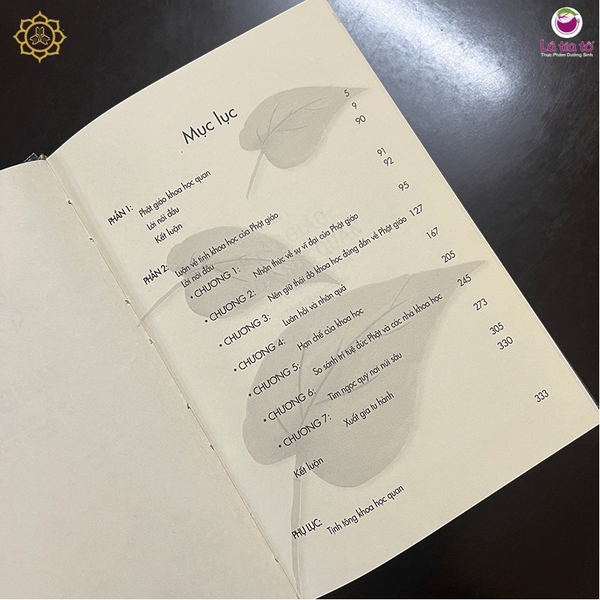 Lá tía tô
Thực Phẩm Dưỡng Sinh
Mục lục
PHẦN 1: Phật giáo khoa học quan 5
Lời nói đầu 9
Kết luận 90
PHẦN 2: Luận về tính khoa học của Phật giáo 91
Lời nói đầu 92
• CHƯƠNG 1: Nhận thức về sự vĩ đại của Phật giáo 95
• CHƯƠNG 2: Nên giữ thái độ khoa học đúng đắn về Phật giáo 127
• CHƯƠNG 3: Luân hồi và nhân quả 167
• CHƯƠNG 4: Hạn chế của khoa học 205
• CHƯƠNG 5: So sánh trí tuệ đức Phật và các nhà khoa học 245
• CHƯƠNG 6: Tìm ngọc quý nơi núi sâu 273
• CHƯƠNG 7: Xuất gia tu hành 305
Kết luận 330
PHỤ LỤC: Tịnh tông khoa học quan 333